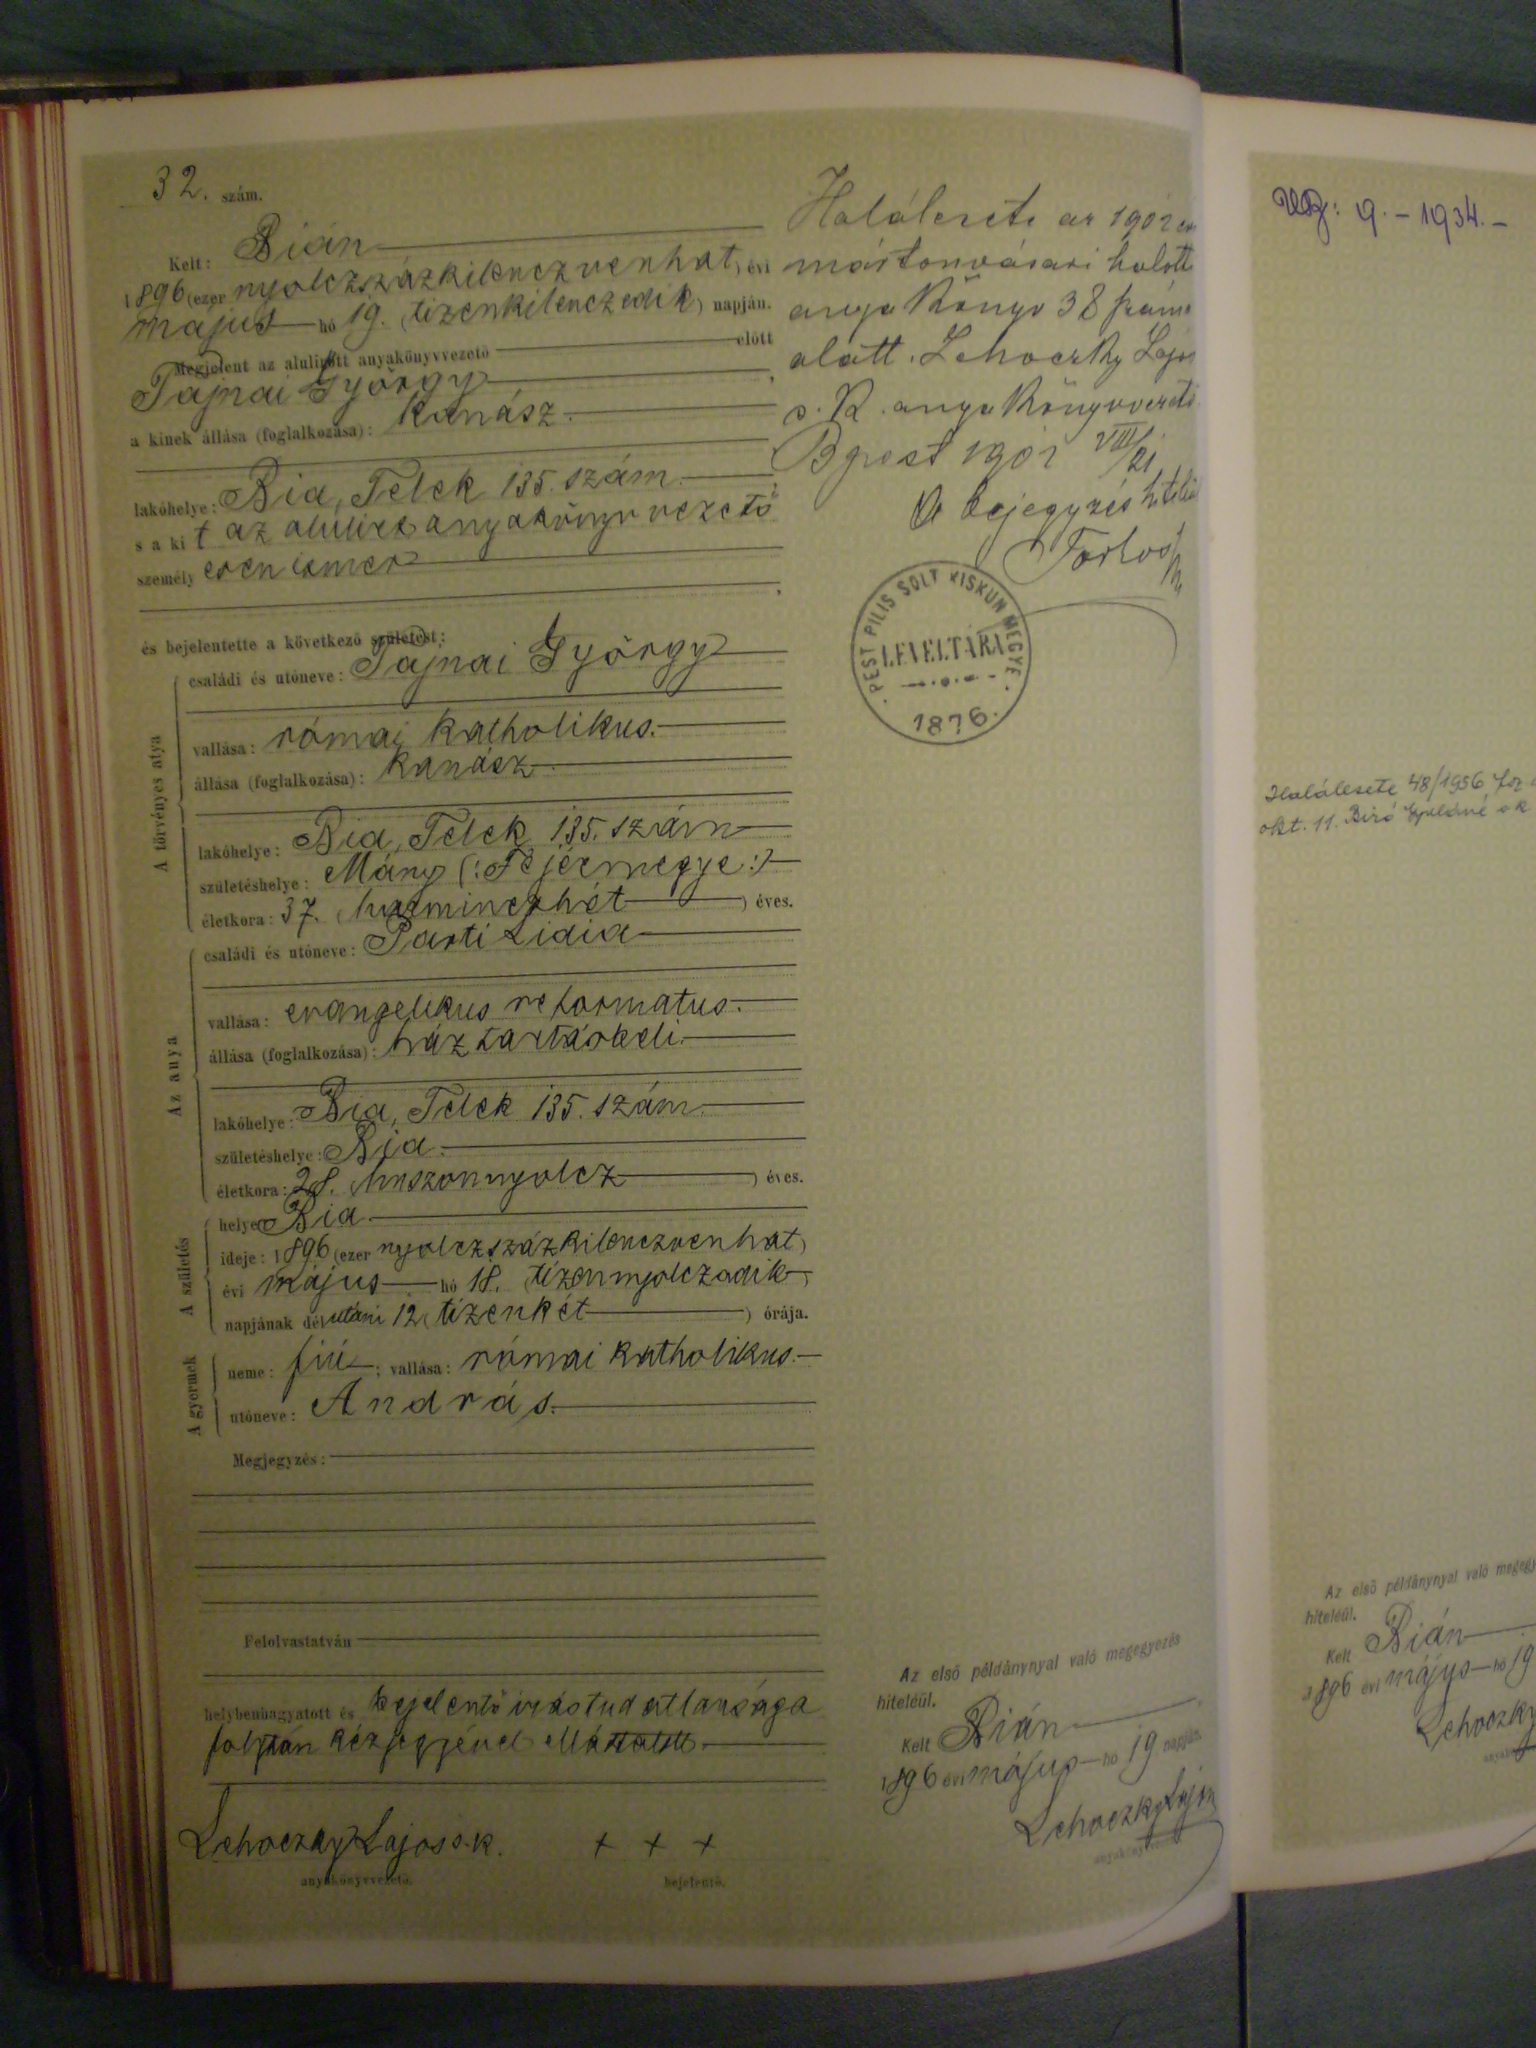 32. szám.
Kelt: Bián
1896 (ezer nyolczszázkilenczvenhat) évi
május hó 19. (tizenkilenczedik) napján.
Megjelent az alulirott anyakönyvvezető előtt
Tajnai György,
a kinek állása (foglalkozása): kanász.
lakóhelye: Bia, Telek 135. szám.
s a kit az alulirt anyakönyvvezető
személyesen ismer
és bejelentette a következő születést:
A törvényes atya
családi és utóneve: Tajnai György
vallása: római katholikus.
állása (foglalkozása): kanász
lakóhelye: Bia, Telek 135. szám
születéshelye: Mány (: Fejérmegye :)
életkora: 37. (harminczhét) éves.
Az anya
családi és utóneve: Parti Lidia
vallása: evangelikus reformatus.
állása (foglalkozása): háztartásbeli.
lakóhelye: Bia, Telek 135. szám.
születéshelye: Bia.
életkora: 28. (huszonnyolcz) éves.
A születés
helye Bia.
ideje: 1896 (ezer nyolczszázkilenczvenhat)
évi május hó 18. (tizennyolczadik)
napjának délutáni 12 (tizenkét) órája.
A gyermek
neme: fiú; vallása: római katholikus.
utóneve: András.
Megjegyzés:
Felolvastatván
helybenhagyatott és bejelentő irástudatlansága
folytán kézjegyével elláttatott.
Lehoczky Lajos s. k. + + +
anyakönyvvezető. bejelentő.
Halálesete az 1902 év
mártonvásári halott
anya könyv 38 szám
alatt. Lehoczky Lajos
s. k. anyakönyvvezető.
Bpest 1902 VIII/21
A bejegyzés hiteléül
PEST PILIS SOLT KISKUN MEGYE
LEVELTÁRA
1876.
Az első példánynyal való megegyezés
hiteléül.
Kelt Bián
1896 évi május hó 19 napján.
Lehoczky Lajos
anyakönyvvezető
9. - 1934. -
Halálesete 48/1956
okt. 11. Biró Gyuláné
Az első példánynyal való megegy
hiteléül.
Kelt Bián
1896 évi május hó 19
Lehoczky